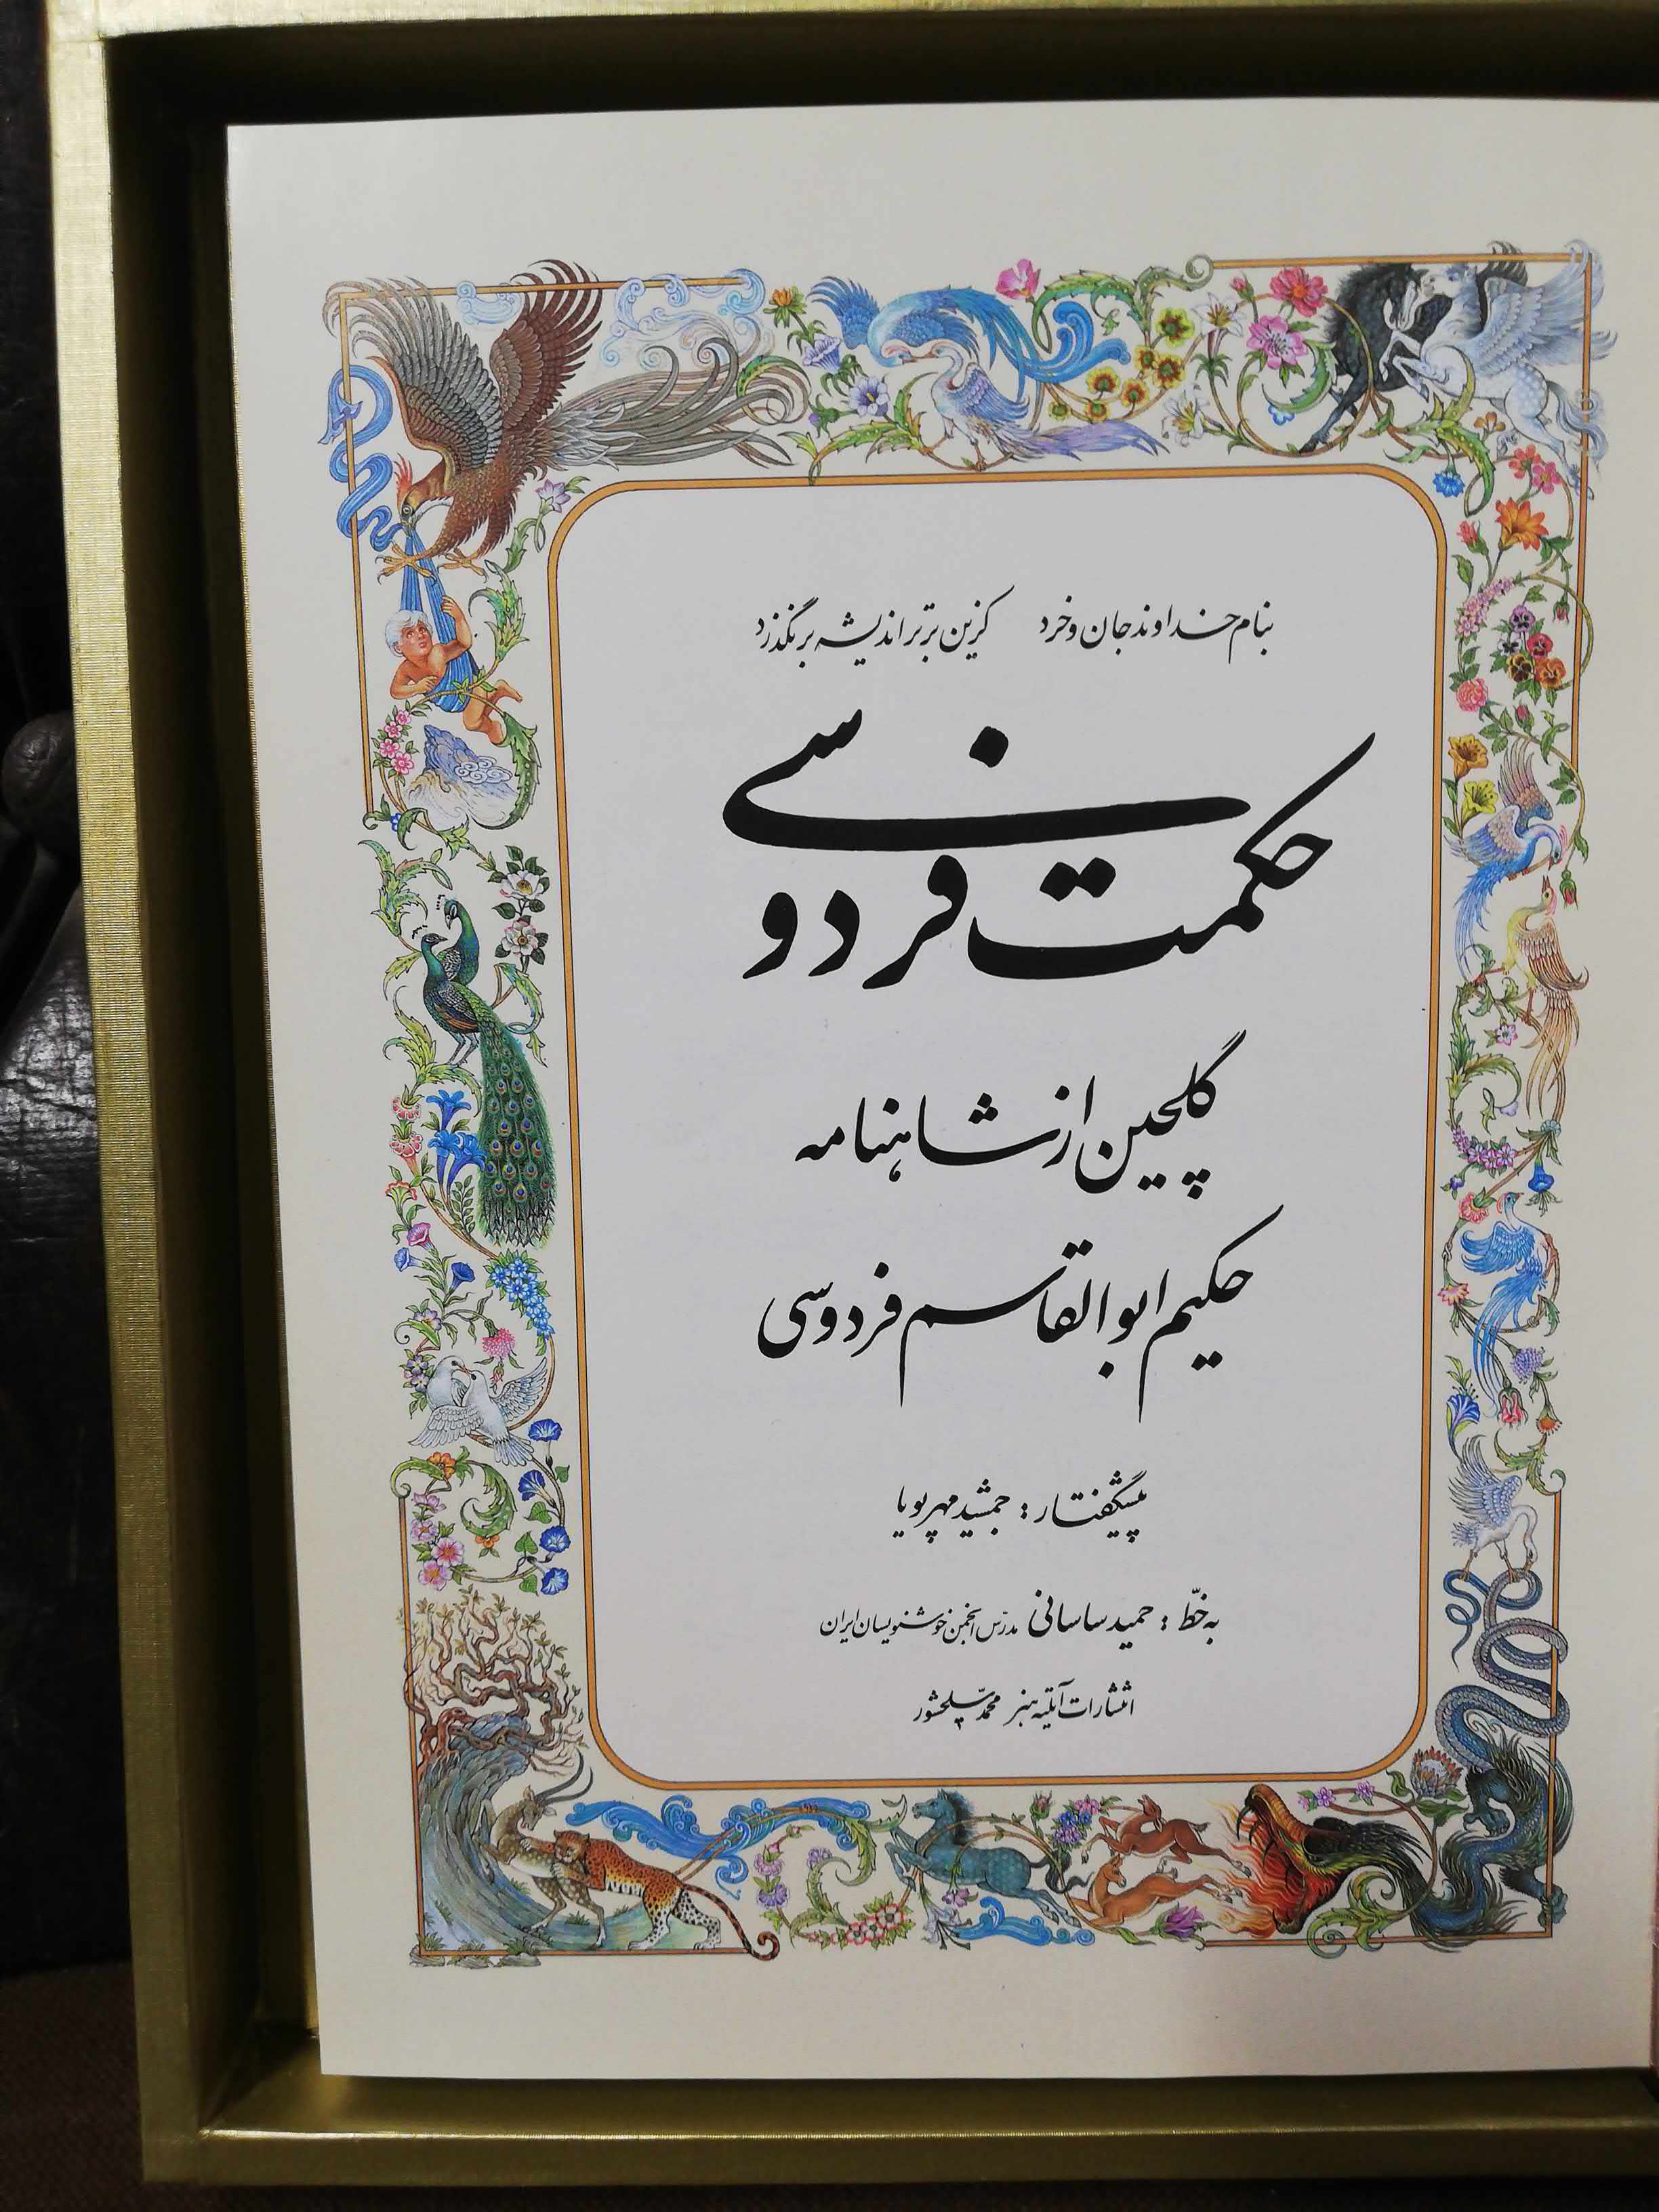 بنام خداوند جان و خرد کزین برتر اندیشه بر نگذرد
حکمت فردوسی
گلچین از شاهنامه
حکیم ابوالقاسم فردوسی
پیشگفتار: جمشید مهرپویا
به خطّ: حمید ساسانی مدرّس انجمن خوشنویسان ایران
انتشارات آتلیه هنر محمد سلحشور